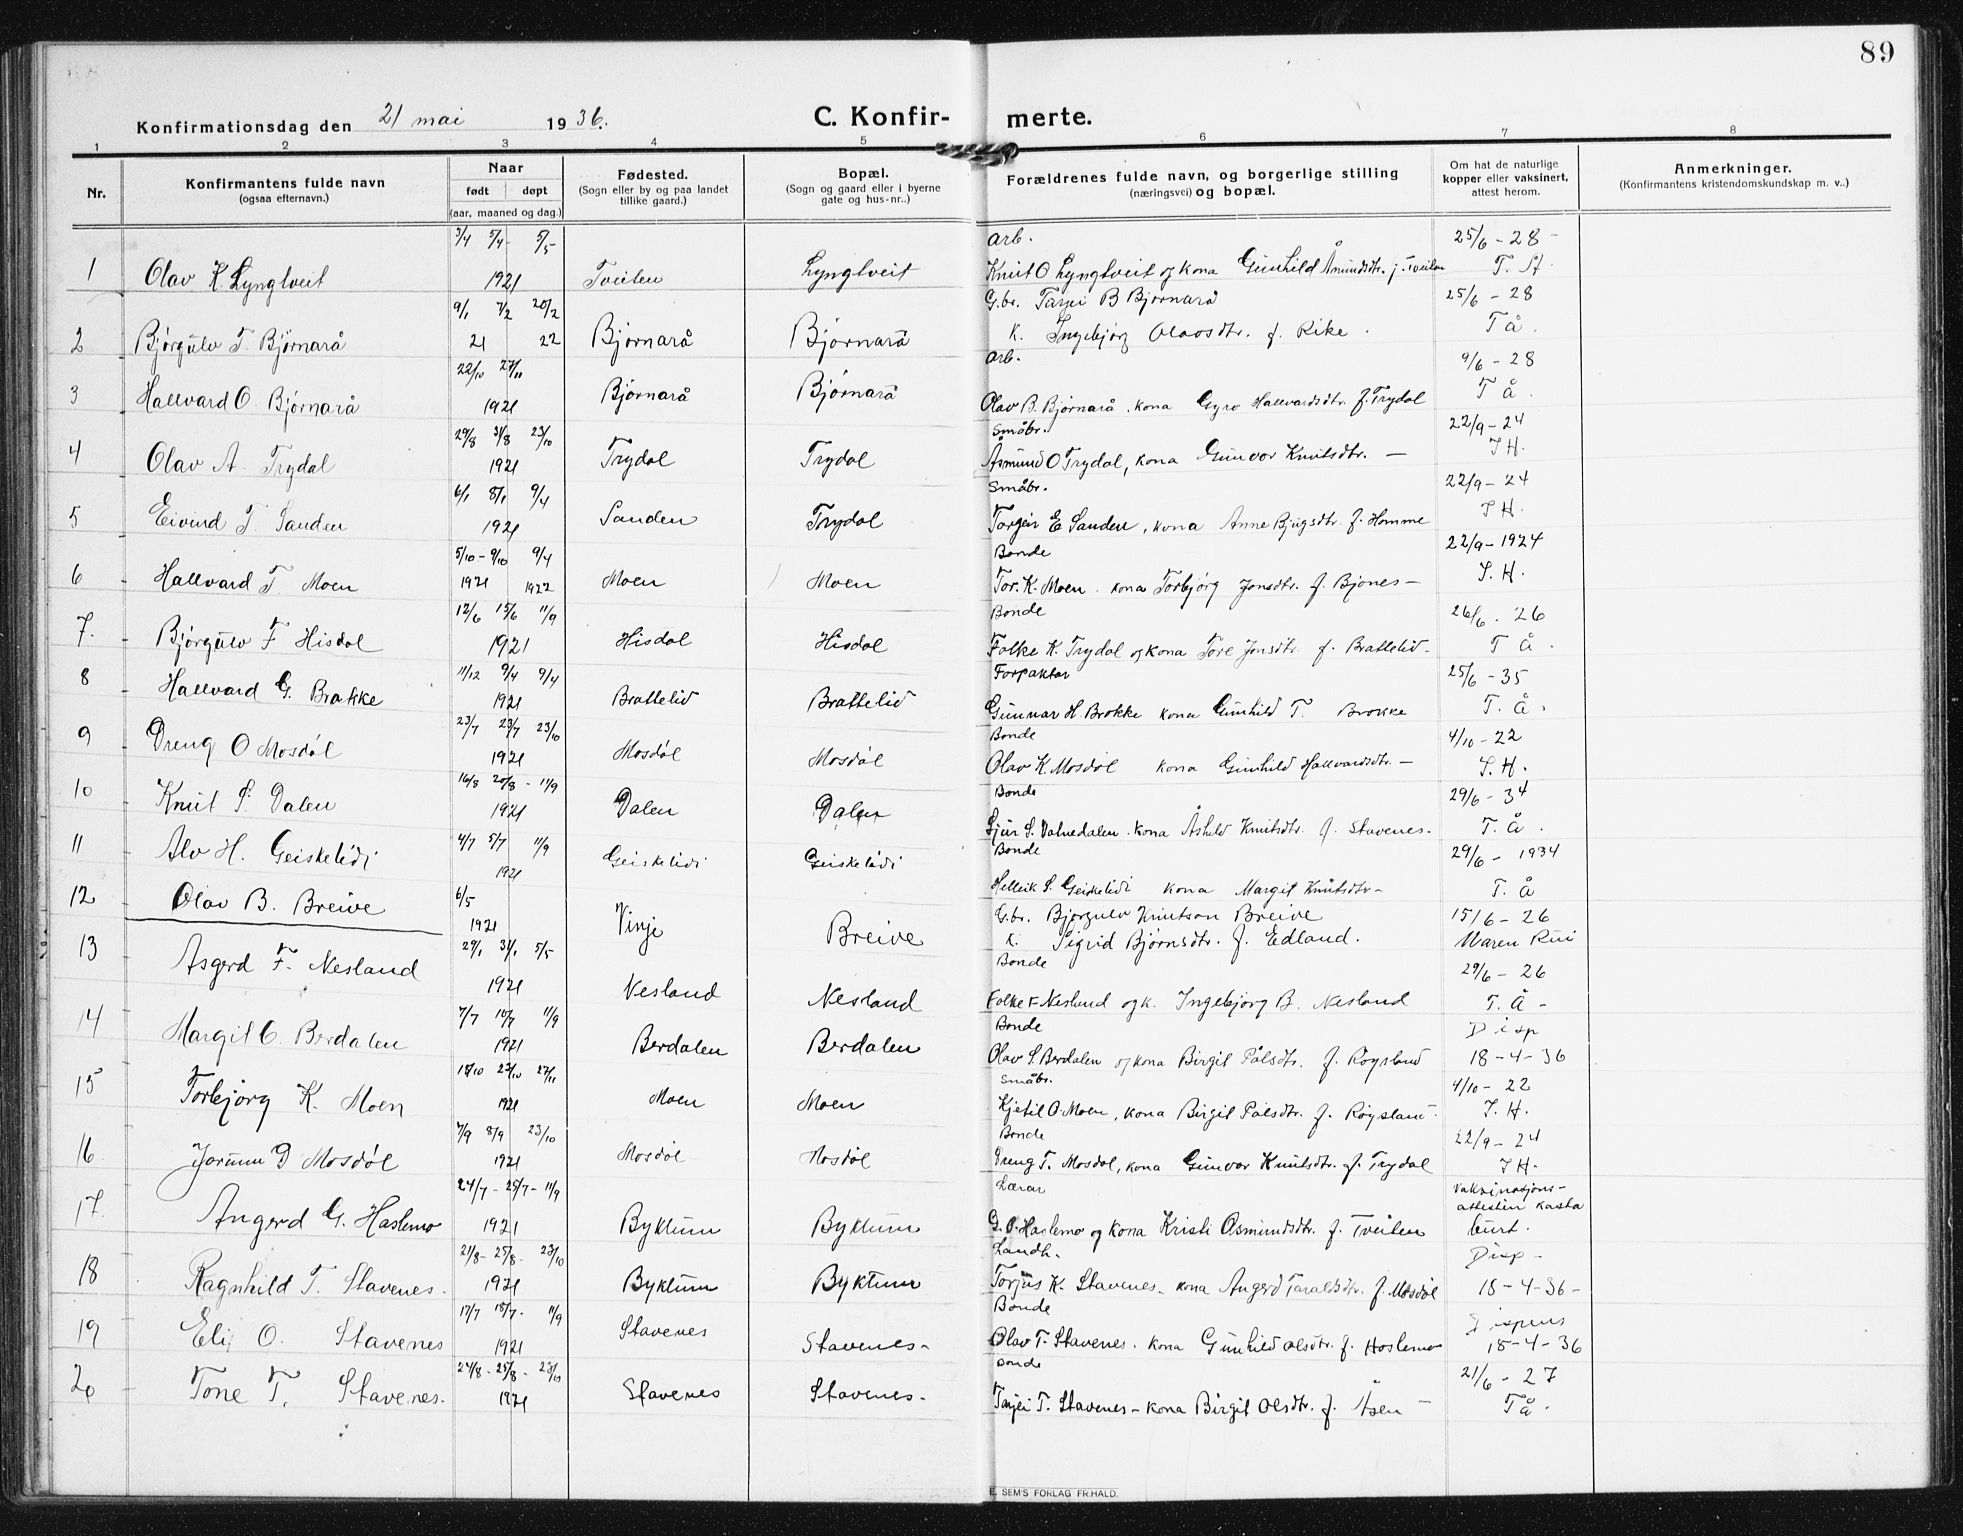 89
Konfirmationsdag den 21 mai 1936.
C. Konfir- merte.
1 2 3 4 5 6 7 8
Nr.
Konfirmantens fulde navn
(ogsaa efternavn.)
Naar
født døpt
(aar, maaned og dag.)
Fødested.
(Sogn eller by og paa landet
tillike gaard.)
Bopæl.
(Sogn og gaard eller i byerne
gate og hus-nr..)
Forældrenes fulde navn, og borgerlige stilling
(næringsvei) og bopæl.
Om hat de naturlige
kopper eller vaksinert,
attest herom.
Anmerkninger.
(Konfirmantens kristendomskundskap m. v..)
3/4 5/4 - 5/5 arb. 25/6 - 28 -
1 Olav K. Lyngtveit 1921 Tveiten Lyngtveit Knut O Lyngtveit og kona Gunhild Åmundsdtr. f. Tveiten T. St.
9/1 7/2 20/2 G.br. Tarjei B Bjørnarå 25/6 - 28
2 Bjørgulv T. Bjørnarå 21 22 Bjørnarå Bjørnarå K. Ingebjørg Olavsdtr. f. Rike. T Å.
22/10 27/11 arb. 9/6 - 28
3 Hallvard O Bjørnarå 1921 Bjørnarå Bjørnarå Olav B. Bjørnarå. kona Gyro Hallvardsdtr. f. Trydal T Å.
29/8 31/8 23/10 Småbr. 22/9 - 24
4 Olav A. Trydal 1921 Trydal Trydal Åsmund O Trydal, kona Gunvor Knutsdtr. - J H.
6/1 8/1 9/4 Småbr. 22/9 - 24
5 Eivind T. Sanden 1921 Sanden Trydal Torgeir E Sanden, kona Anne Bjugsdtr. f. Homme J H.
5/10 - 9/10 9/4 Bonde 22/9 - 1924
6 Hallvard T. Moen 1921 1922 Moen Moen Tor. K. Moen. kona Torbjørg Jonsdtr. f. Bjones - J. H.
12/6 15/6 11/9 Bonde 26/6. 26
7. Bjørgulv F Hisdal 1921 Hisdal Hisdal Folke K. Trydal og kona Tore Jonsdtr. f. Brattelid - T Å.
11/12 9/4 9/4 Forpaktar 25/6 - 35
8 Hallvard G. Brokke 1921 Brattelid Brattelid Gunnar H. Brokke kona Gunhild T. Brokke T. Å.
23/7 23/7 23/10 Bonde 4/10 - 22
9 Dreng O Mosdøl 1921 Mosdøl Mosdøl Olav K. Mosdøl kona Gunhild Hallvardsdtr. - J. H.
16/8 20/8 - 11/9 Bonde 29/6 - 34
10 Knut S. Dalen 1921 Dalen Dalen Sjur S. Vatnedalen. kona Åshild Knutsdtr. f. Stavenes. T. Å.
4/7 5/7 11/9 Bonde 29/6 - 1934
11 Alv H. Geiskelidi 1921 Geiskelidi Geiskelidi Helleik S. Geiskelidi kona Margit Knutsdtr - T. Å
6/5 G.br. Bjørgulv Knutson Breive 15/6 - 26
12 Olav B. Breive 1921 Vinje Breive K. Sigrid Bjørnsdtr. f. Edland. Maren Rui
29/1 31/1 5/5 Bonde 29/6 - 26
13 Asgerd F. Nesland 1921 Nesland Nesland Folke F Nesland og k. Ingebjørg B. Nesland T. Å -
7/7 10/7 11/9 Bonde Disp
14 Margit O. Berdalen 1921 Berdalen Berdalen Olav S. Berdalen og kona Birgit Pålsdtr. f. Røysland 18 - 4 - 36
15/10 23/10 27/11 Småbr. 4/10 - 22
15 Torbjørg K. Moen 1921 Moen Moen Kjetil O. Moen, kona Birgit Pålsdtr. f. Røysland. J. H.
7/9 8/9 23/10 Bonde 22/9 - 24
16 Jorunn D Mosdøl 1921 Mosdøl Mosdøl Dreng T. Mosdøl, kona Gunvor Knutsdtr. f. Trydal J H.
24/7 - 25/7 - 11/9 Lærar vaksinasjons-
attestin kasta
17. Angerd G. Haslemo 1921 Bykkum Bykkum G. O. Haslemo og kona Kristi Osmundsdtr. f. Tveiten burt.
21/8 - 25/8 - 23/10 Landh. Disp -
18 Ragnhild T. Stavenes. 1921 Bykkum Bykkum Torjus K. Stavenes - kona Angerd Taraldsdtr. f. Mosdøl 18 - 4 - 36 -
17/7 18/7 - 11/9 Bonde Dispens
19 Eli O. Stavenes 1921 Stavenes Stavenes - Olav T. Stavenes. kona Gunhild Olsdtr. f. Hoslemo 18 - 4 - 36
24/8 - 25/8 - 23/10 Bonde 21/6 - 27
20 Tone T. Stavenes. 1921 Stavenes Stavenes - Tarjei T. Stavenes - kona Birgit Olsdtr. f. Åsen - T Å.
E. SEM'S FORLAG FR.HALD.